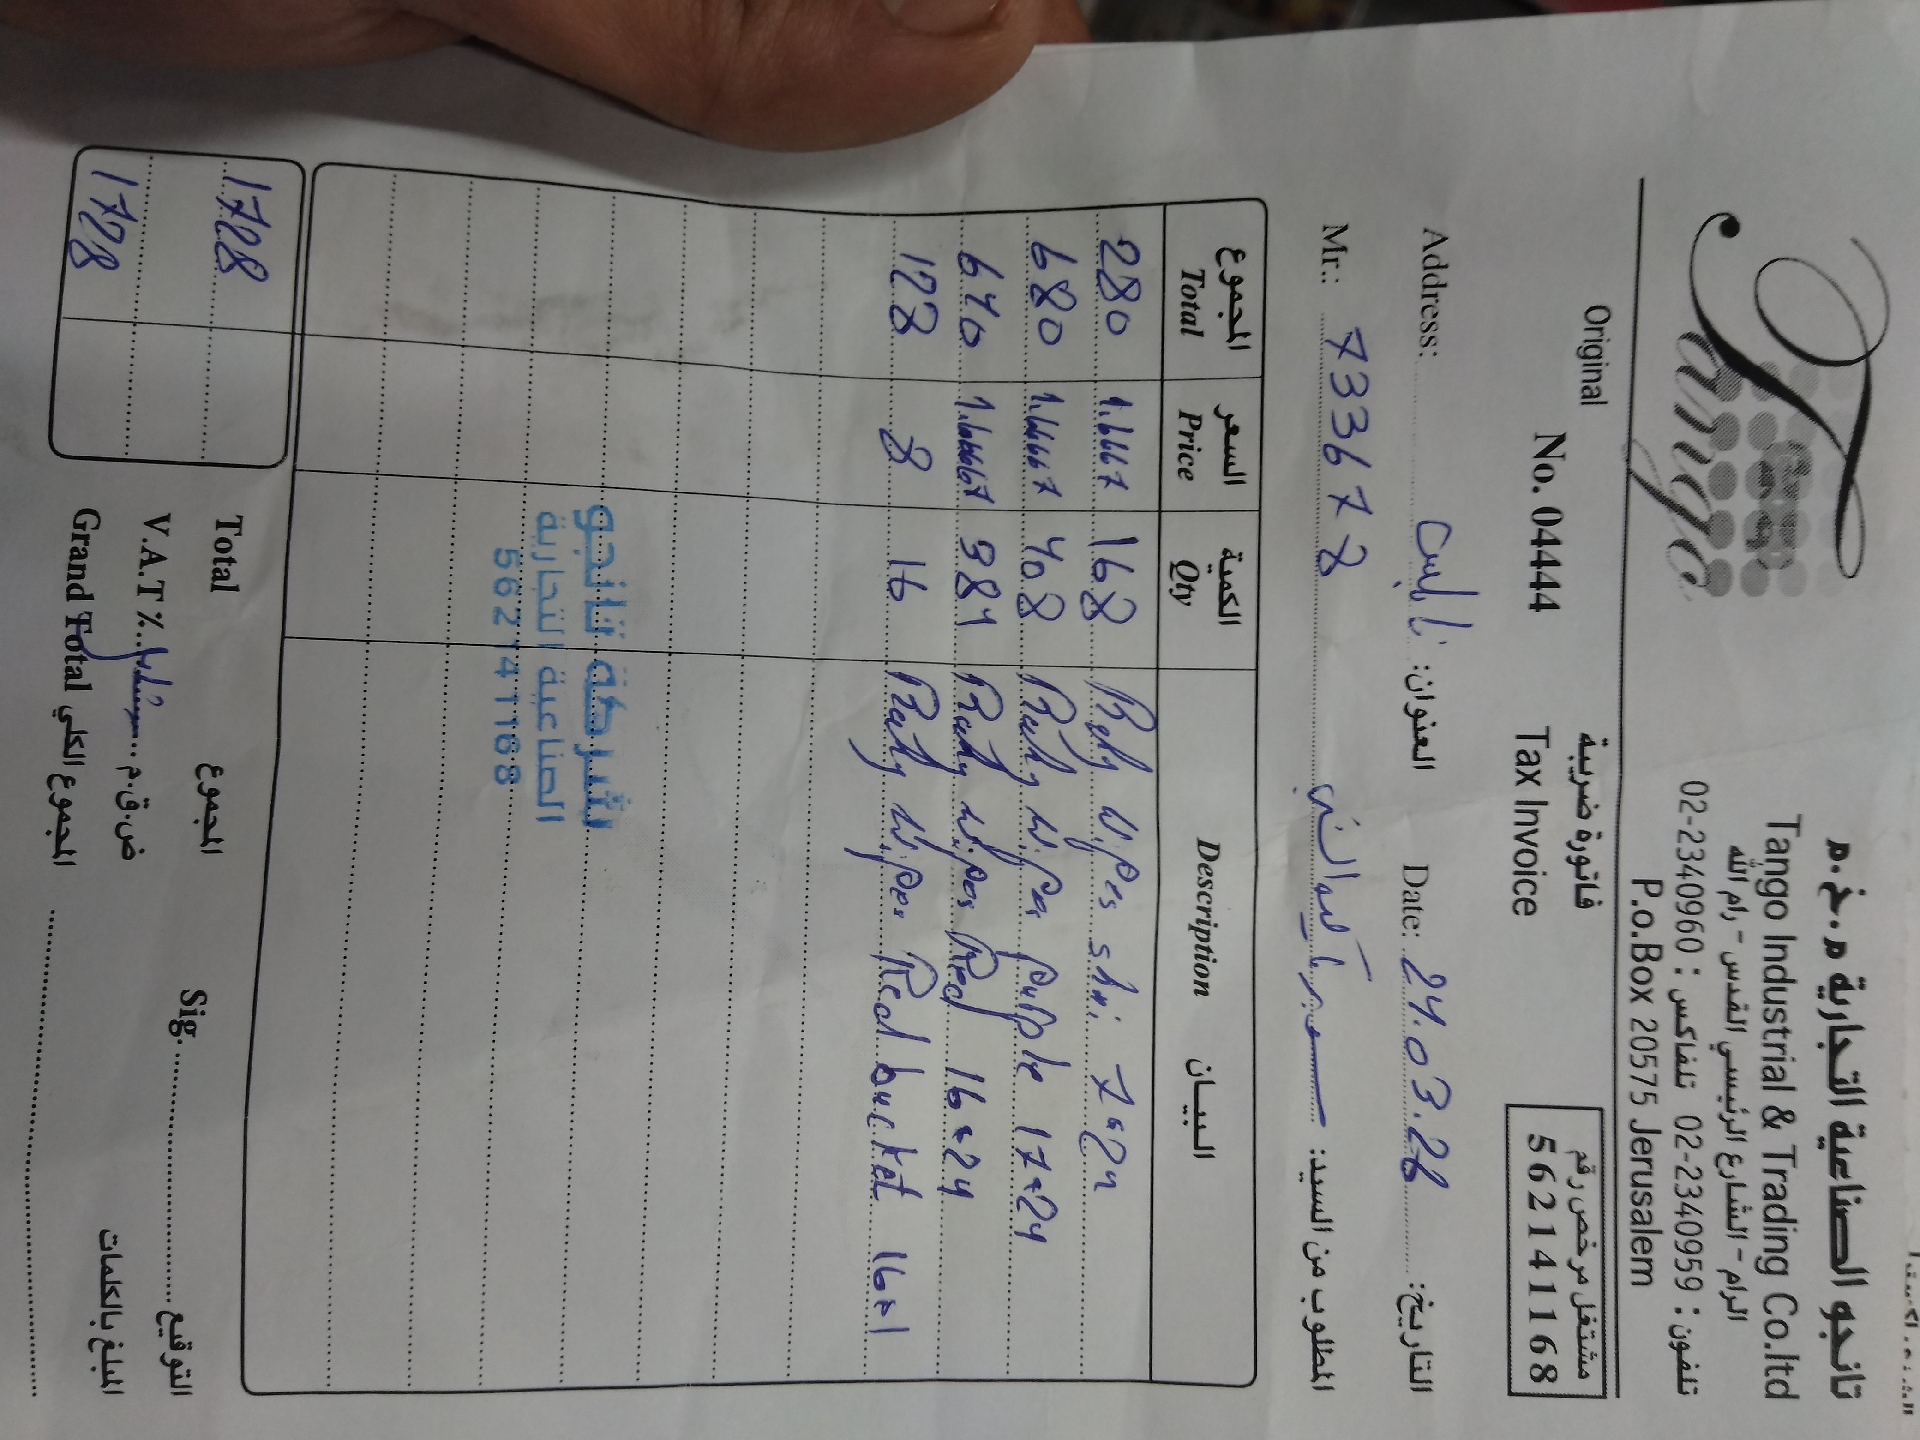 تانجو الصناعية التجارية م.خ.م
Tango Industrial & Trading Co.ltd
الرام - الشارع الرئيسي القدس - رام الله
تلفون : 02-2340959 تلفاكس : 02-2340960
P.o.Box 20575 Jerusalem
Tango
Original
فاتورة ضريبية
مشتغل مرخص رقم
No. 04444
Tax Invoice
562141168
Address: نابلس العنوان: Date: 24.03.26 التاريخ:
Mr.: 733678 المطلوب من السيد:
المجموع السعر الكمية
Total Price Qty Description البيان
280 1.6667 168 Baby Wipes 7*24
680 1.66667 408 Baby Wipes purple 17*24
640 1.666667 384 Baby Wipes Red 16*24
128 8 16 Baby Wipes Red bucket 16*1
شركة تانجو
الصناعية التجارية
562141168
1728 Total المجموع
V.A.T % ض.ق.م Sig. التوقيع
1728 Grand Total المجموع الكلي المبلغ بالكلمات